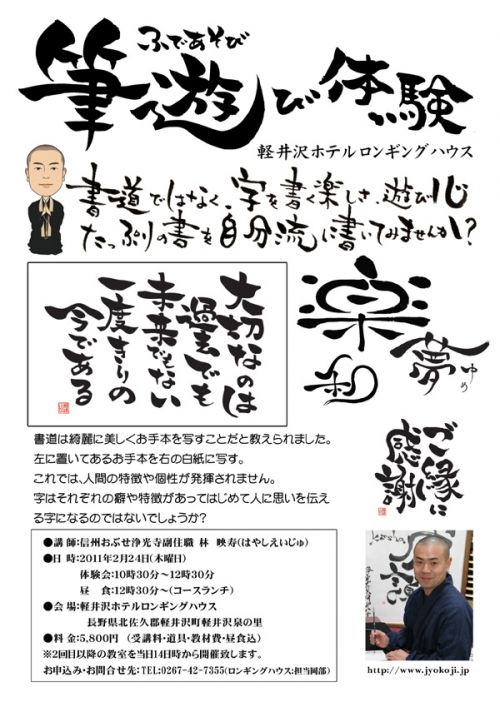 ふであそび
筆遊び体験
軽井沢ホテルロンギングハウス
書道ではなく、字を書く楽しさ、遊び心
たっぷりの書を自分流に書いてみませんか？
大切なのは
過去でも
未来でもない
一度きりの
今である
楽
夢
ゆめ
和
ご縁に
感謝
書道は綺麗に美しくお手本を写すことだと教えられました。
左に置いてあるお手本を右の白紙に写す。
これでは、人間の特徴や個性が発揮されません。
字はそれぞれの癖や特徴があってはじめて人に思いを伝え
る字になるのではないでしょうか？
●講 師:信州おぶせ浄光寺副住職 林 映寿(はやしえいじゅ)
●日 時:2011年2月24日(木曜日)
体験会:10時30分〜12時30分
昼 食:12時30分〜(コースランチ)
●会 場:軽井沢ホテルロンギングハウス
長野県北佐久郡軽井沢町軽井沢泉の里
●料 金:5,800円 (受講料・道具・教材費・昼食込)
※2回目以降の教室を当日14日時から開催致します。
お申込み・お問合せ先:TEL:0267-42-7355(ロンギングハウス:担当岡部)
http://www.jyokoji.jp